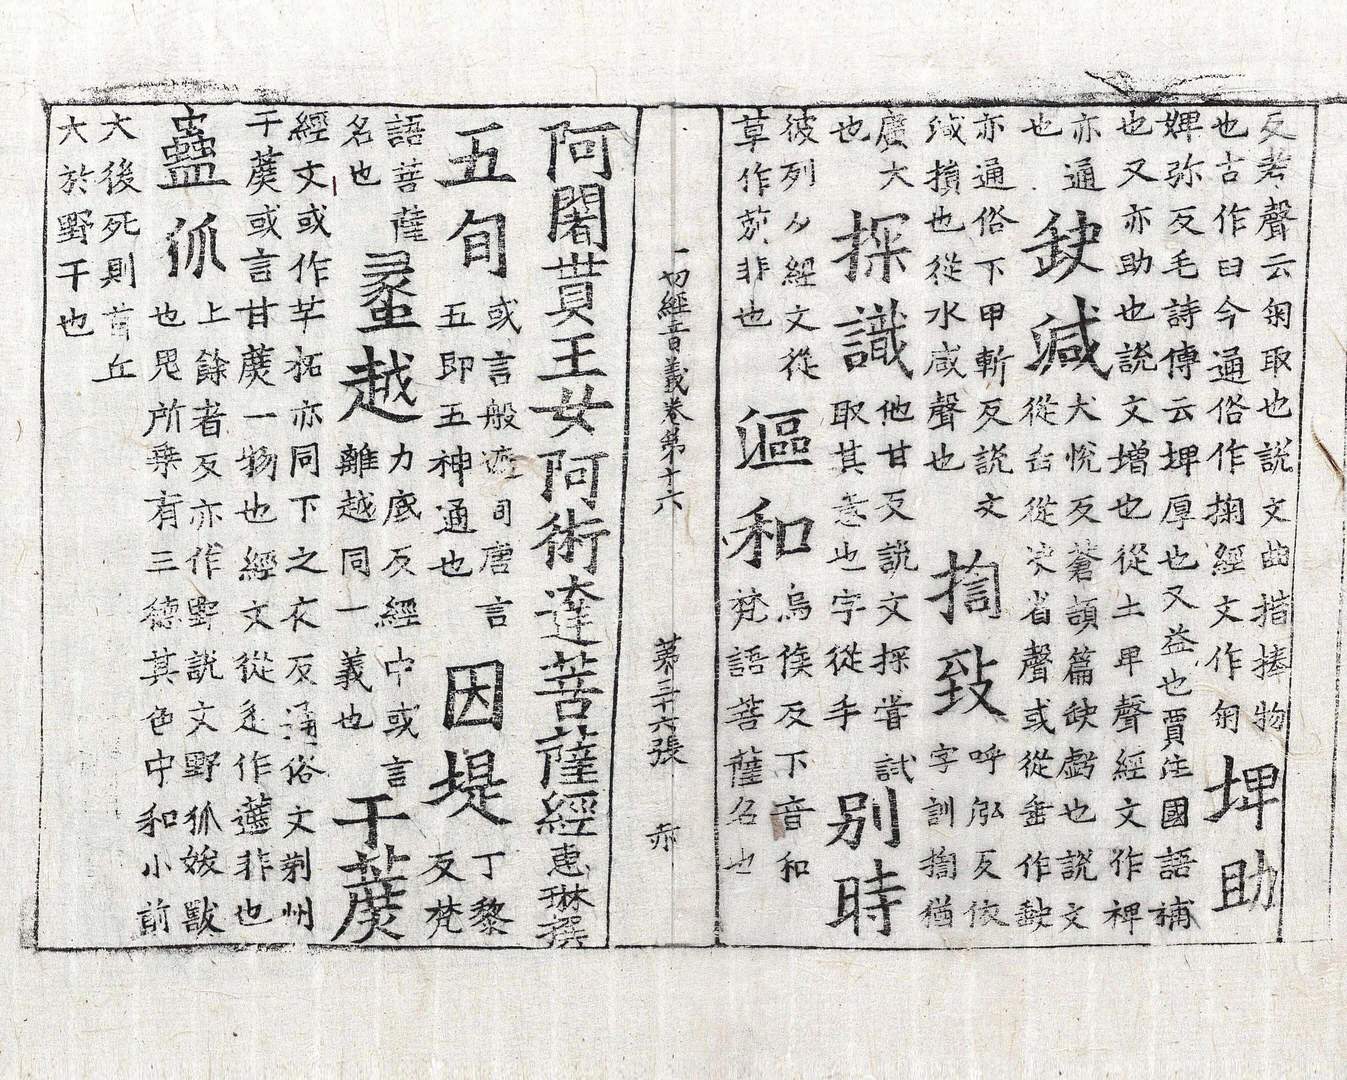 反考聲云匊取也說文曲指捧物
也古作臼今通俗作掬經文作匊
埤助
婢弥反毛詩傳云埤厚也又益也賈注國語補
也又亦助也說文增也從土卑聲經文作裨
亦通
也
缺減
犬悅反蒼頡篇缺虧也說文
從缶從決省聲或從垂作
亦通俗下甲斬反說文
減損也從水咸聲也
搄致
呼泓反依
字訓搄猶
廣大
也
探識
他甘反說文探嘗試
取其意也字從手
別時
彼列反經文從
草作莂非也
漚和
烏侯反下音和
梵語菩薩名也
一切經音義卷第十六 第三十六張 赤
阿闍貰王女阿術達菩薩經惠琳撰
五旬
或言般遮旬唐言
五即五神通也
因堤
丁黎
反梵
語菩薩
名也
蠡越
力底反經中或言
離越同一義也
干蔗
經文或作芉柘亦同下之夜反通俗文荆州
干蔗或言甘蔗一物也經文從辵作非也
蠱狐
上餘者反亦作野說文野狐妭獸
也鬼所乗有三德其色中和小前
大後死則首丘
大於野干也